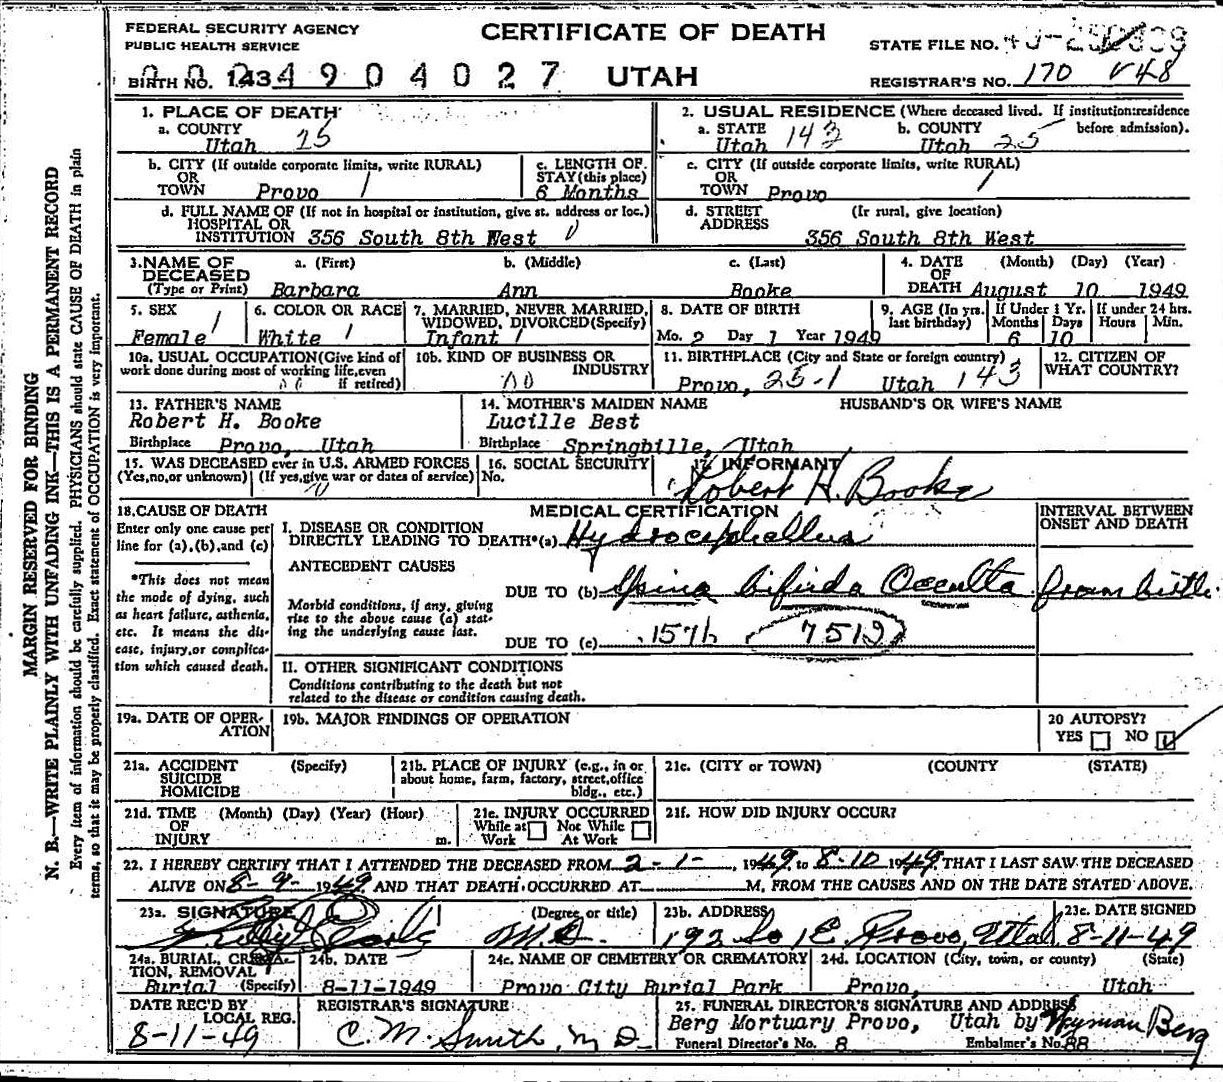 FEDERAL SECURITY AGENCY
PUBLIC HEALTH SERVICE
CERTIFICATE OF DEATH
STATE FILE NO.
BIRTH NO. 143 4904027
UTAH
REGISTRAR'S NO. 170 V48
1. PLACE OF DEATH
a. COUNTY
Utah 25
2. USUAL RESIDENCE (Where deceased lived. If institution: residence before admission).
a. STATE
Utah 143
b. COUNTY
Utah 25
b. CITY (If outside corporate limits, write RURAL)
OR
TOWN Provo 1
c. LENGTH OF
STAY (this place)
6 Months
c. CITY (If outside corporate limits, write RURAL)
OR
TOWN Provo 1
d. FULL NAME OF (If not in hospital or institution, give st. address or loc.)
HOSPITAL OR
INSTITUTION 356 South 8th West
d. STREET (Ir rural, give location)
ADDRESS
356 South 8th West
3. NAME OF
DECEASED
(Type or Print)
a. (First)
Barbara
b. (Middle)
Ann
c. (Last)
Booke
4. DATE (Month) (Day) (Year)
OF
DEATH August 10 1949
5. SEX
Female 1
6. COLOR OR RACE
White 1
7. MARRIED, NEVER MARRIED,
WIDOWED, DIVORCED (Specify)
Infant 1
8. DATE OF BIRTH
Mo. 2 Day 1 Year 1949
9. AGE (In yrs. last birthday)
If Under 1 Yr.
Months Days
6 10
If under 24 hrs.
Hours Min.
10a. USUAL OCCUPATION (Give kind of
work done during most of working life, even
if retired)
10b. KIND OF BUSINESS OR
INDUSTRY
11. BIRTHPLACE (City and State or foreign country)
Provo, 25-1 Utah 143
12. CITIZEN OF
WHAT COUNTRY?
13. FATHER'S NAME
Robert H. Booke
Birthplace Provo, Utah
14. MOTHER'S MAIDEN NAME
Lucille Best
Birthplace Springbille, Utah
HUSBAND'S OR WIFE'S NAME
15. WAS DECEASED ever in U.S. ARMED FORCES
(Yes, no, or unknown) (If yes, give war or dates of service)
16. SOCIAL SECURITY
No.
17. INFORMANT
Robert H. Booke
18. CAUSE OF DEATH
Enter only one cause per
line for (a), (b), and (c)
*This does not mean
the mode of dying, such
as heart failure, asthenia,
etc. It means the dis-
ease, injury, or complica-
tion which caused death.
MEDICAL CERTIFICATION
INTERVAL BETWEEN
ONSET AND DEATH
I. DISEASE OR CONDITION
DIRECTLY LEADING TO DEATH*(a) Hydrocephallus
ANTECEDENT CAUSES
DUE TO (b) Spina bifida Occulta from birth
Morbid conditions, if any, giving
rise to the above cause (a) stat-
ing the underlying cause last.
DUE TO (c)
II. OTHER SIGNIFICANT CONDITIONS
Conditions contributing to the death but not
related to the disease or condition causing death.
19a. DATE OF OPER-
ATION
19b. MAJOR FINDINGS OF OPERATION
20 AUTOPSY?
YES NO
21a. ACCIDENT (Specify)
SUICIDE
HOMICIDE
21b. PLACE OF INJURY (e.g., in or
about home, farm, factory, street, office
bldg., etc.)
21c. (CITY or TOWN) (COUNTY) (STATE)
21d. TIME (Month) (Day) (Year) (Hour)
OF
INJURY m.
21e. INJURY OCCURRED
While at Work Not While At Work
21f. HOW DID INJURY OCCUR?
22. I HEREBY CERTIFY THAT I ATTENDED THE DECEASED FROM 2-1-, 1949, to 8-10 1949 THAT I LAST SAW THE DECEASED
ALIVE ON 8-9- 1949 AND THAT DEATH OCCURRED AT M, FROM THE CAUSES AND ON THE DATE STATED ABOVE.
23a. SIGNATURE
(Degree or title)
M.D.
23b. ADDRESS
192 So 1 E. Provo, Utah
23c. DATE SIGNED
8-11-49
24a. BURIAL, CREMA-
TION, REMOVAL
Burial (Specify)
24b. DATE
8-11-1949
24c. NAME OF CEMETERY OR CREMATORY
Provo City Burial Park
24d. LOCATION (City, town, or county) (State)
Provo, Utah
DATE REC'D BY
LOCAL REG.
8-11-49
REGISTRAR'S SIGNATURE
C. M. Smith, M D
25. FUNERAL DIRECTOR'S SIGNATURE AND ADDRESS
Berg Mortuary Provo, Utah by Wyman Berg
Funeral Director's No. 8 Embalmer's No. 88
MARGIN RESERVED FOR BINDING
N. B.—WRITE PLAINLY WITH UNFADING INK—THIS IS A PERMANENT RECORD
Every item of information should be carefully supplied. PHYSICIANS should state CAUSE OF DEATH in plain
terms, so that it may be properly classified. Exact statement of OCCUPATION is very important.